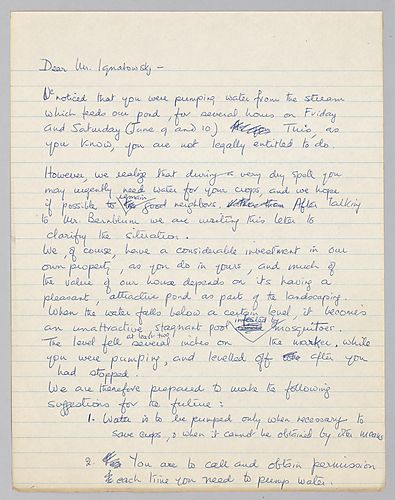 Dear Mr. Ignatowsky –
We noticed that you were pumping water from the stream
which feeds our pond, for several hours on Friday
and Saturday (June 9 and 10) This, as
you know, you are not legally entitled to do.
However, we realize that during a very dry spell you
may urgently need water for your crops, and we hope
if possible to remain good neighbors. After talking
to Mr. Bernblum we are writing this letter to
clarify the situation.
We, of course, have a considerable investment in our
own property, as you do in yours, and much of
the value of our house depends on its having a
pleasant, attractive pond as part of the landscaping.
When the water falls below a certain level, it becomes
an unattractive stagnant pool infested by mosquitoes.
The level fell at least two several inches on the marker, while
you were pumping, and levelled off after you
had stopped.
We are therefore prepared to make the following
suggestions for the future:
1. Water is to be pumped only when necessary to
save crops, & when it cannot be obtained by other means
2. You are to call and obtain permission
each time you need to pump water.